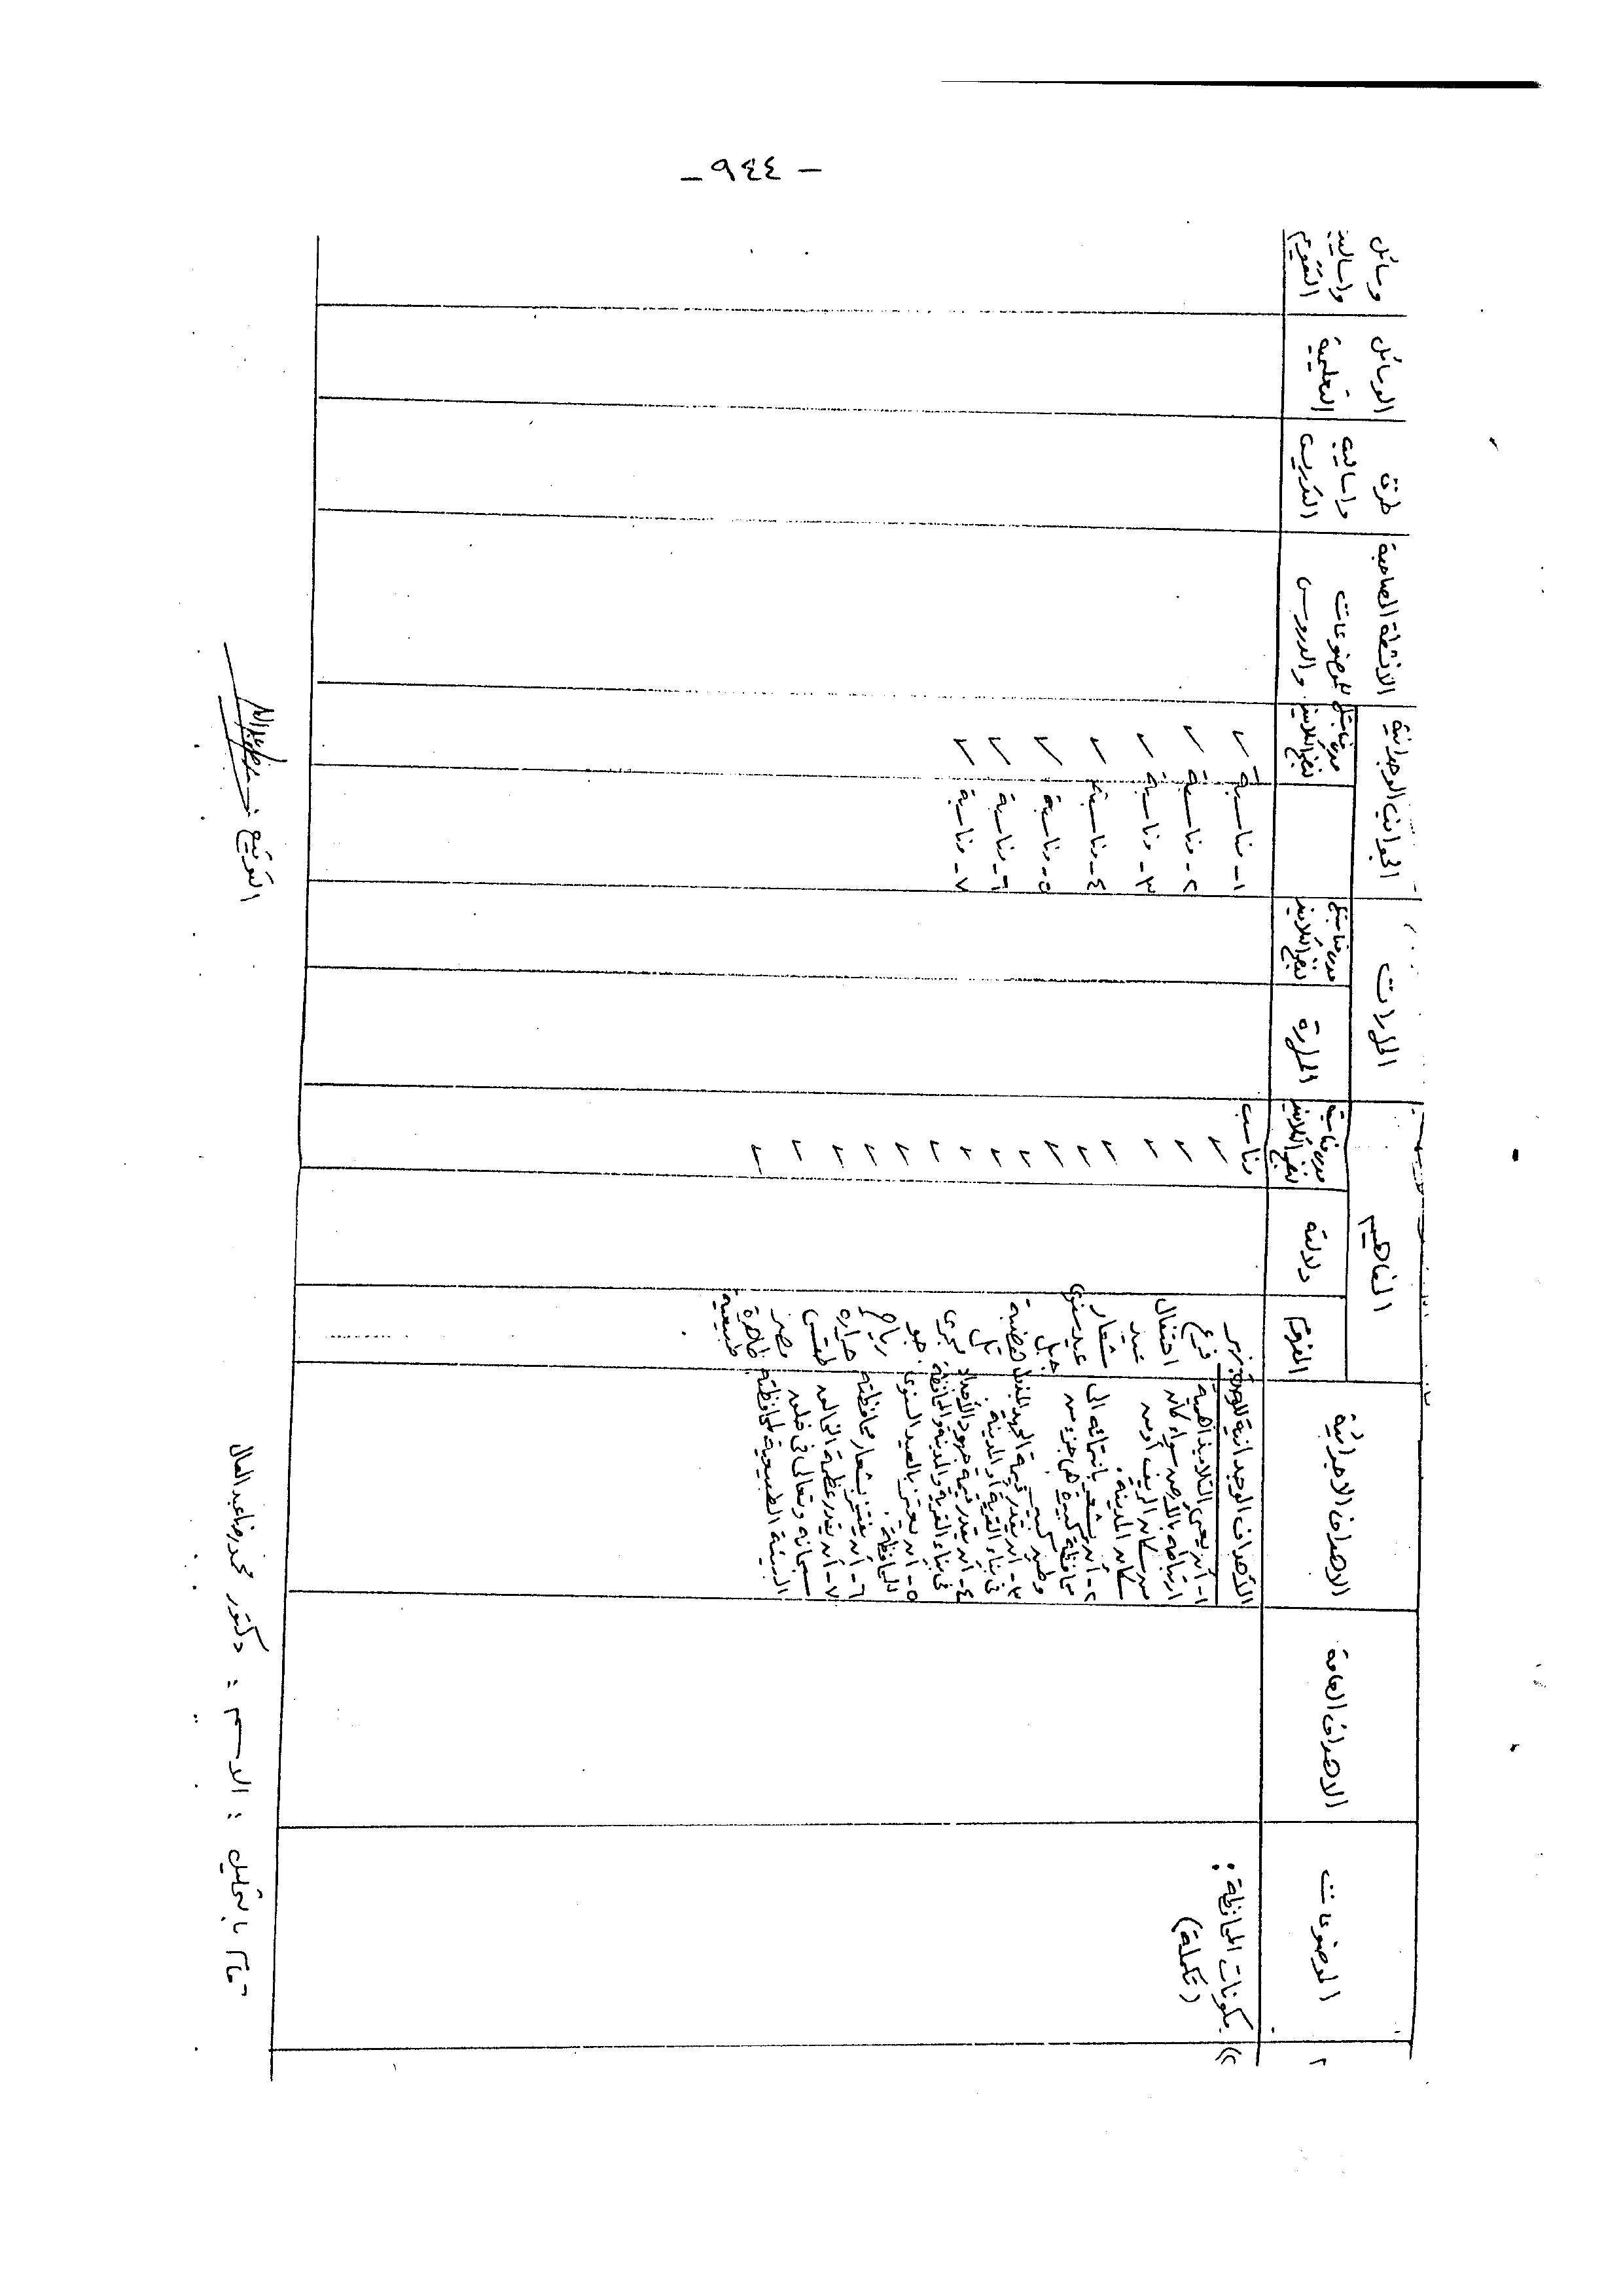 - ٩٤٤ -
م
الموضوعات
الاهداف العامة
الاهداف الاجرائية
المفاهيم
المفهوم
دلالته
مدى مناسبته
لنضج التلاميذ
المهارات
المهارة
مدى مناسبتها
لنضج التلاميذ
الجوانب الوجدانية
مدى مناسبتها
لنضج التلاميذ
الأنشطة المصاحبة
للموضوعات
والدروس
طرق
واساليب
التدريس
الوسائل
التعليمية
وسائل
واساليب
التقويم
(٢)
مكونات المحافظة :
(تكملة)
الأهداف الوجدانية للوحدة:
١- أن يعي التلاميذ أهمية
ارتباطه بالأرض سواء كان
من سكان الريف أو من
سكان المدينة.
٢- أن يشعر بانتمائه الى
محافظة كبيرة هى جزء من
وطن كبير
٣- أن يقدر قيمة الجهد المبذول
فى بناء القرية أو المدينة.
٤- أن يقدر قيمة جهود الأجداد
فى بناء القرية والمدينة والمحافظة
٥- أن يعتز بالعيد السنوى
للمحافظة.
٦- أن يفتخر بشعار محافظته
٧- أن يقدر عظمة الخالق
سبحانه وتعالى فى خلق
البيئة الطبيعية لمحافظته
نهر
فرع
احتفال
عيد
شعار
عيد سنوى
جبل
هضبة
تل
مجرى
جو
رياح
حراره
طقس
مصر
ظاهرة
طبيعية
مناسب
١- مناسبة
٢- مناسبة
٣- مناسبة
٤- مناسبة
٥- مناسبة
٦- مناسبة
٧- مناسبة
قام بالتحليل : الاسم : دكتور محمد رضا عبد العال
التوقيع